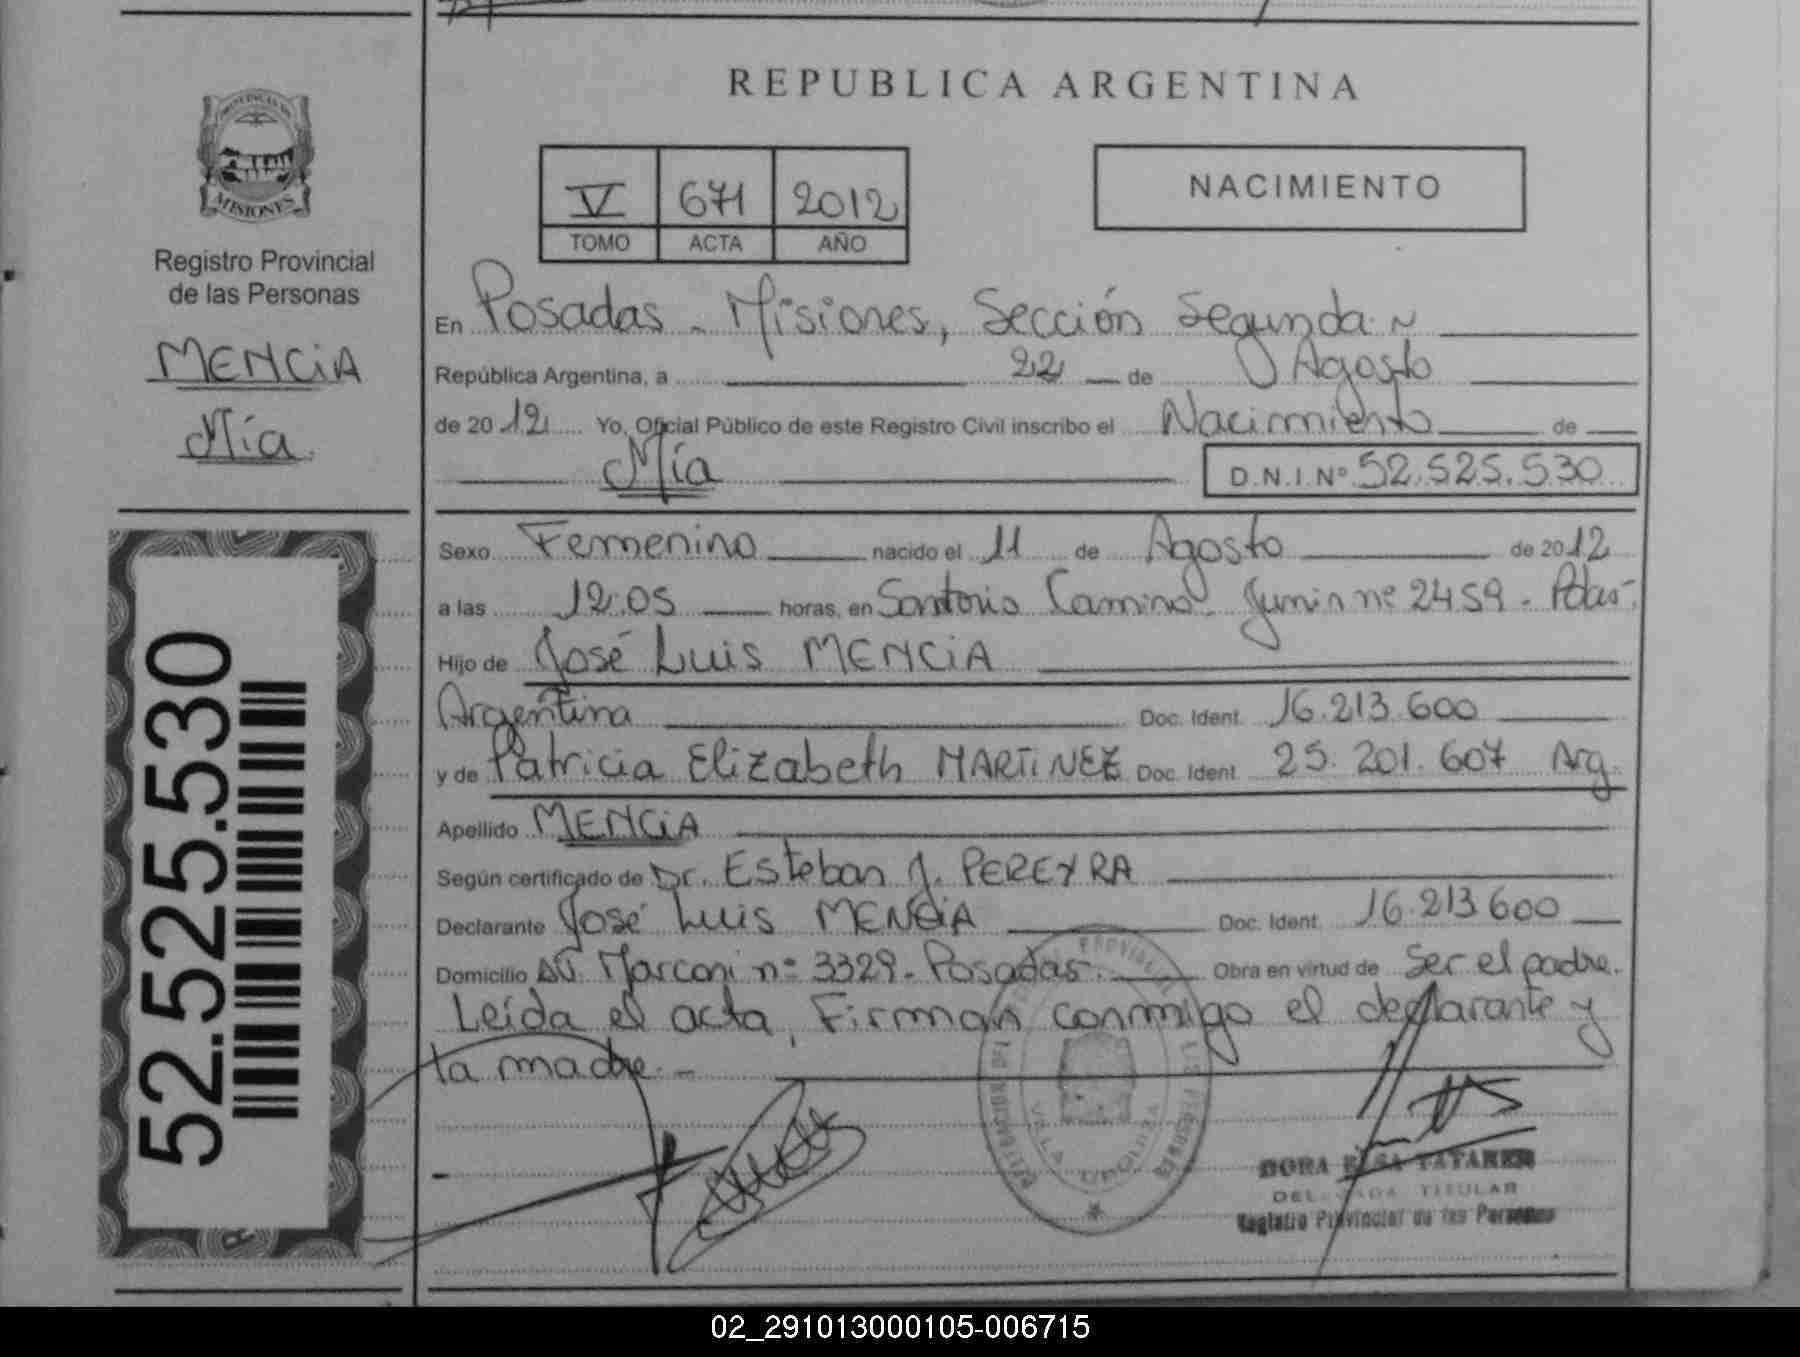 REPUBLICA ARGENTINA
MISIONES
Registro Provincial
de las Personas
MENCiA
Mía.
52.525.530
V 671 2012
TOMO ACTA AÑO
NACIMIENTO
En Posadas - Misiones, Sección Segunda
República Argentina, a 22 de Agosto
de 2012 Yo, Oficial Público de este Registro Civil inscribo el Nacimiento de
Mía D.N.I.Nº 52.525.530
Sexo Femenino nacido el 11 de Agosto de 2012
a las 12:05 horas, en Junin nº 2459 -
Hijo de José Luis MENCiA
Argentina Doc. Ident. 16.213.600
y de Patricia Elizabeth MARTiNEZ Doc. Ident. 25.201.607 Arg.
Apellido MENCiA
Según certificado de Dr. Esteban J. PEREYRA
Declarante José Luis MENCiA Doc. Ident. 16.213.600
Domicilio Av. Marconi nº 3329 - Posadas. Obra en virtud de Ser el padre.
Leída el acta, Firman conmigo el declarante y
la madre. -
DORA ELSA
DELEGADA TITULAR
Registro Provincial de las Personas
02_291013000105-006715